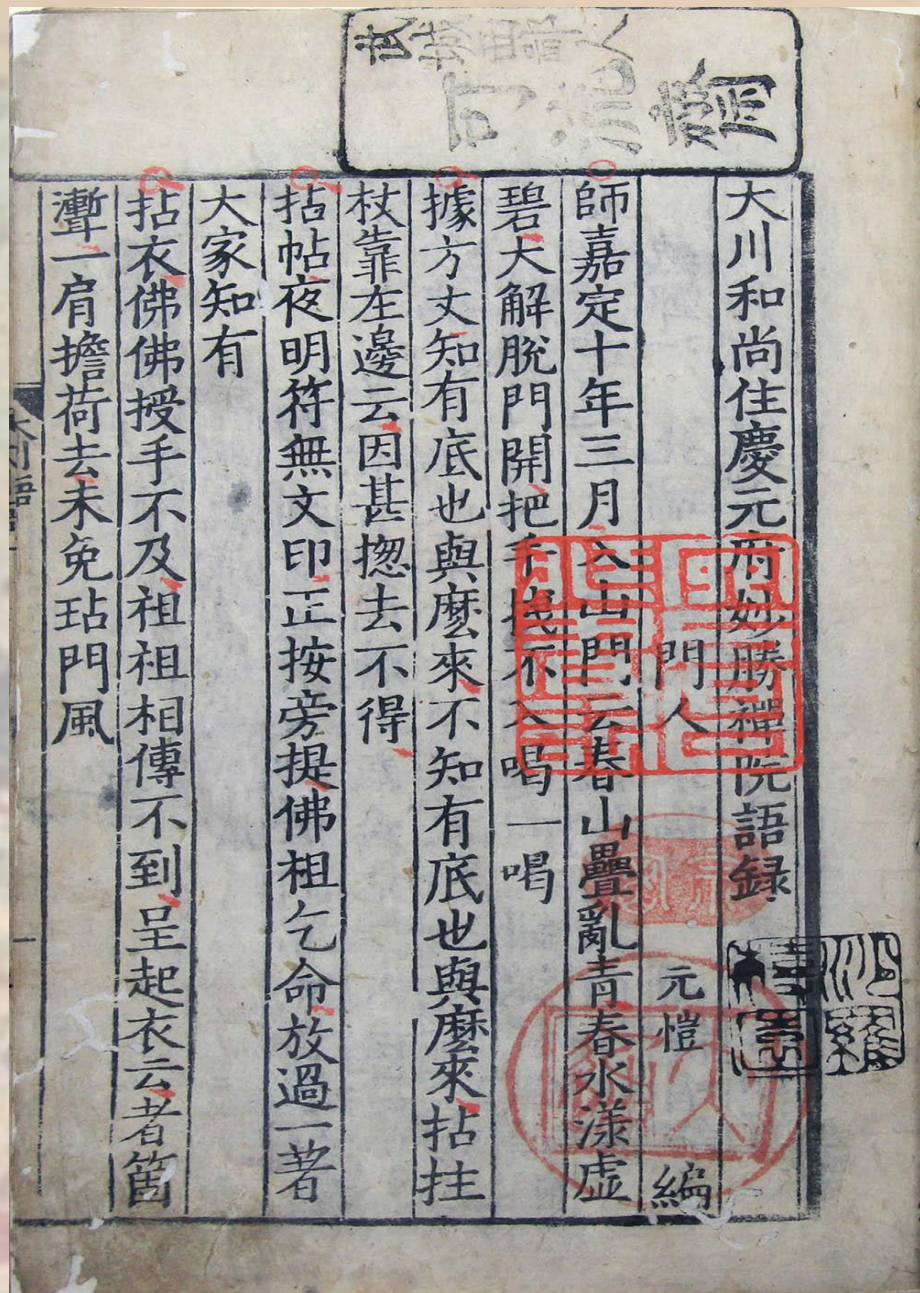 大川和尚住慶元府妙勝禪院語録
門人　元愷　編
師嘉定十年三月入山門云春山疊亂青春水漾虛
碧大解脫門開把手拽不入喝一喝
據方丈知有底也與麼來不知有底也與麼來拈拄
杖靠在邊云因甚揔去不得
拈帖夜明符無文印正按旁提佛祖乞命放過一著
大家知有
拈衣佛佛授手不及祖祖相傳不到呈起衣云者箇
聻一肩擔荷去未免玷門風